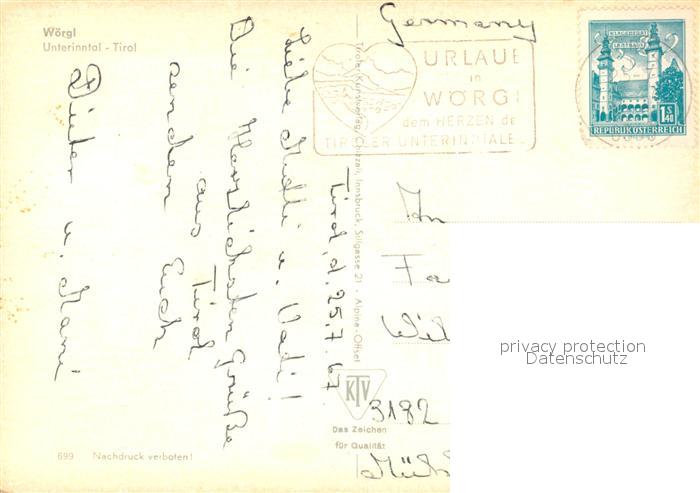 Wörgl
Unterinntal - Tirol
Germany
URLAUB
in
WÖRGL
dem HERZEN de
TIROLER UNTERINNTALE
KLAGENFURT
LANDHAUS
1 S 40
REPUBLIK ÖSTERREICH
Tirol, d. 25.7.67
Liebe Mutti u. Vati!
Die herzlichsten Grüße
aus Tirol
senden Euch
Dieter u. Mami
Tiroler Kunstverlag Chizzali, Innsbruck, Sillgasse 21 · Alpina-Offset
An
Fa
Wil
3182
KTV
Das Zeichen
für Qualität
699 Nachdruck verboten!
privacy protection
Datenschutz